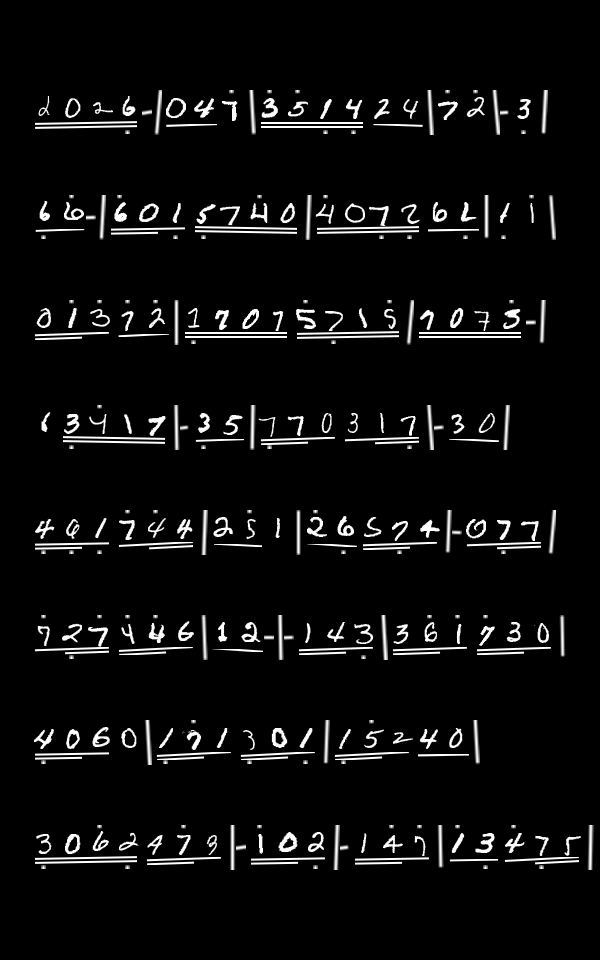 2026-|047|351424|72-3|
66-|6015740|407262|11|
01372|17075715|7073-|
63417|-35|770317|-30|
461744|251|26574|-077|
727446|12-|-143|361730|
4060|171301|15240|
3062479|-102|-147|13475|